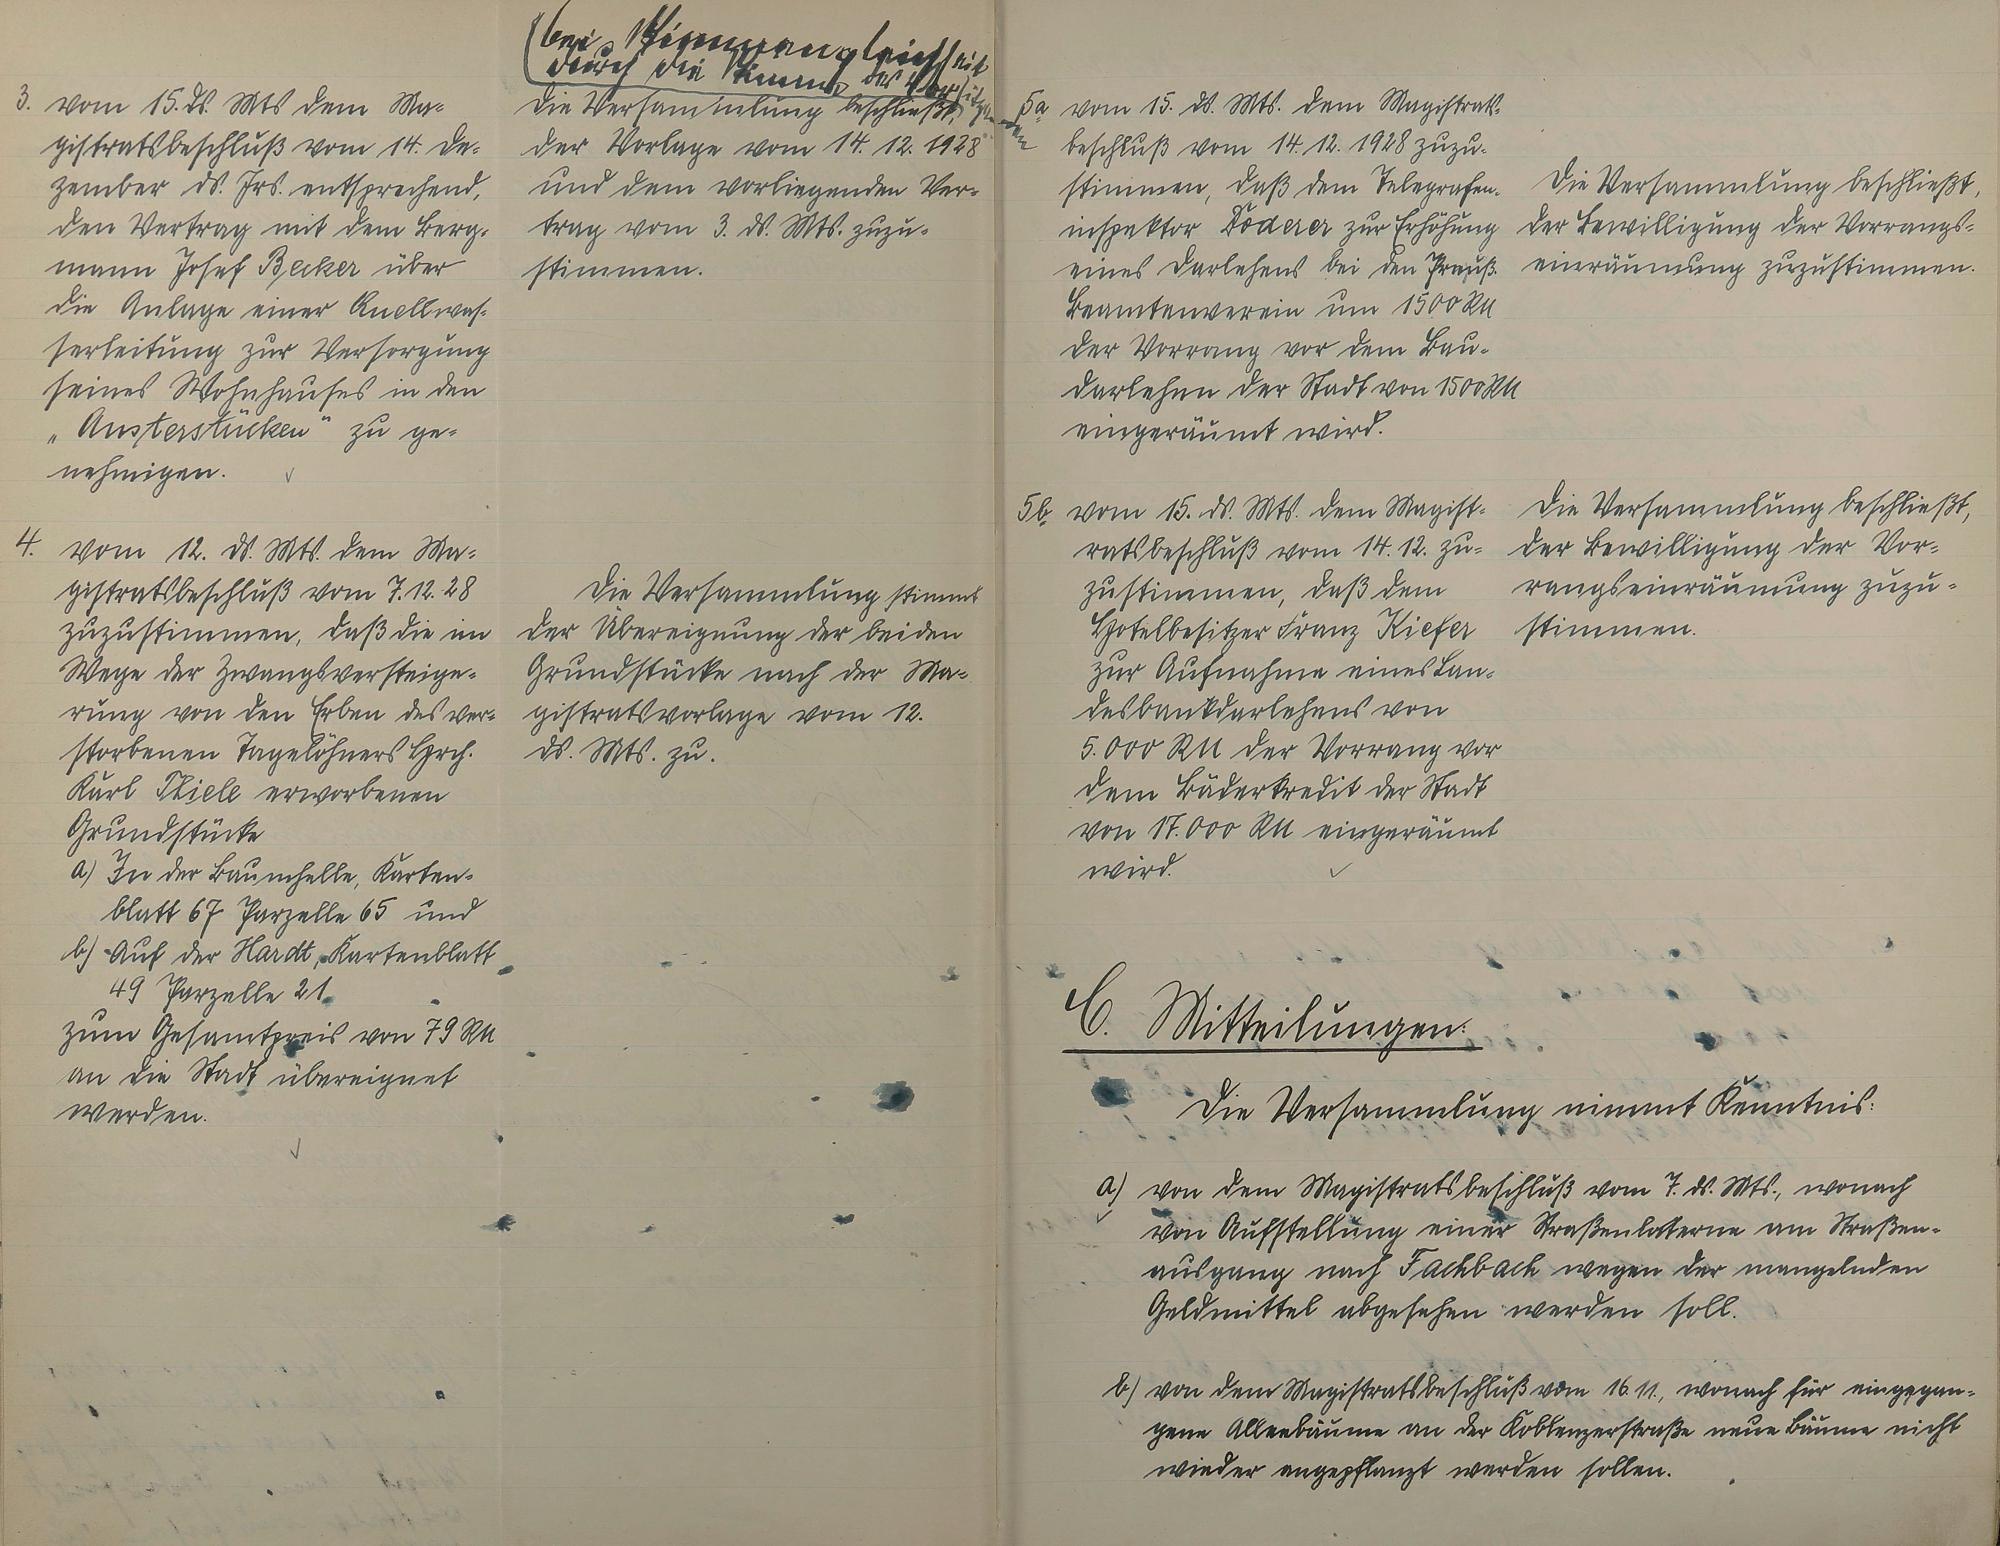 3. vom 15. ds. Mts dem Ma-
gistratsbeschluß vom 14. De-
zember ds. Jrs. entsprechend,
den Vertrag mit dem Berg-
mann Josef Becker über
die Anlage einer Quellwas-
serleitung zur Versorgung
seines Wohnhauses in den
„Austerstücken" zu ge-
nehmigen.
(bei Stimmengleichheit
durch die Stimme des Vorsitzen-
den
die Versammlung beschließt,
der Vorlage vom 14. 12. 1928
und dem vorliegenden Ver-
trag vom 3. ds. Mts. zuzu-
stimmen.
4. vom 12. ds. Mts. dem Ma-
gistratsbeschluß vom 7.12.28
zuzustimmen, daß die im
Wege der Zwangsversteige-
rung von den Erben des ver-
storbenen Tagelöhners Hrch.
Karl Thiele erworbenen
Grundstücke
a) In der Baumhelle, Karten-
blatt 67 Parzelle 65 und
b) Auf der Hardt, Kartenblatt
49 Parzelle 21
zum Gesamtpreis von 79 RM
an die Stadt übereignet
werden.
Die Versammlung stimmt
der Übereignung der beiden
Grundstücke nach der Ma-
gistratsvorlage vom 12.
ds. Mts. zu.
5a vom 15. ds. Mts. dem Magistrats-
beschluß vom 14. 12. 1928 zuzu-
stimmen, daß dem Telegrafen-
inspektor Döderer zur Erhöhung
eines Darlehens bei den Preuß.
Beamtenverein um 1500 RM
der Vorrang vor dem Bau-
darlehn der Stadt von 1500 RM
eingeräumt wird.
Die Versammlung beschließt,
der Bewilligung der Vorrangs-
einräumung zuzustimmen.
5b vom 15. ds. Mts. dem Magist-
ratsbeschluß vom 14. 12. zu-
zustimmen, daß dem
Hotelbesitzer Franz Kiefer
zur Aufnahme eines Lan-
desbankdarlehens von
5.000 RM der Vorrang vor
dem Bäderkredit der Stadt
von 17.000 RM eingeräumt
wird.
Die Versammlung beschließt,
der Bewilligung der Vor-
rangseinräumung zuzu-
stimmen.
C. Mitteilungen:
Die Versammlung nimmt Kenntnis:
a) von dem Magistratsbeschluß vom 7. ds. Mts., wonach
von Aufstellung einer Straßenlaterne am Straßen-
ausgang nach Fachbach wegen der mangelnden
Geldmittel abgesehen werden soll.
b) von dem Magistratsbeschluß vom 16.11., wonach für eingegan-
gene Alleebäume an der Koblenzerstraße neue Bäume nicht
wieder angepflanzt werden sollen.